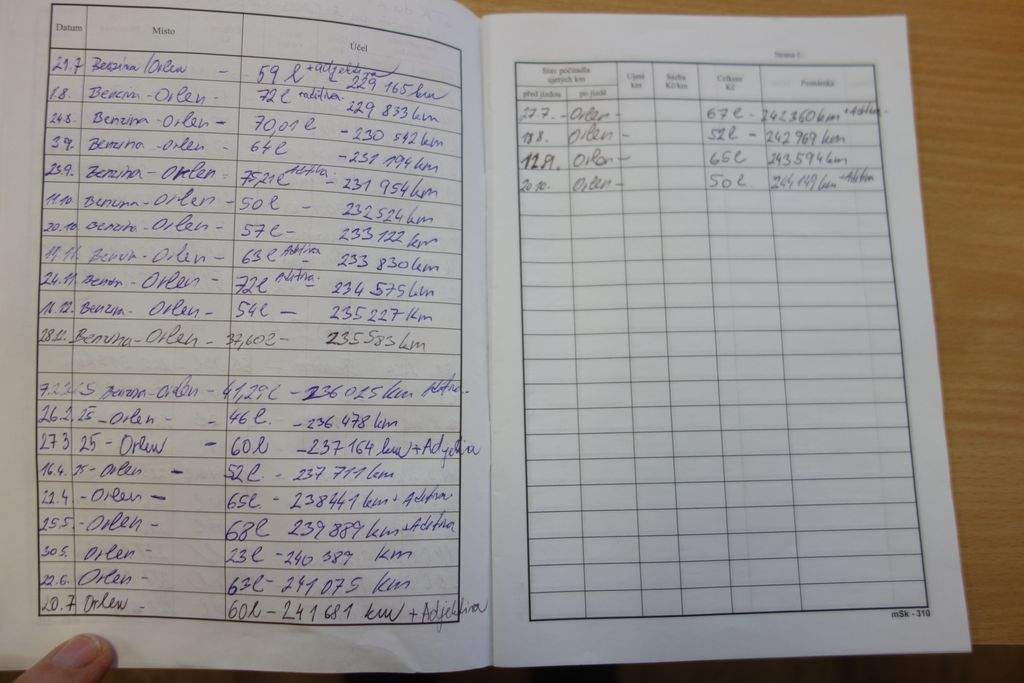 Datum Místo Účel
21.7 Benzina/Orlen - 59 l + adjektiva - 229 165 km
1.8. Benzina - Orlen - 72 l + aditiva - 229 833 km
24.8. Benzina - Orlen - 70,01 l - 230 542 km
3.9. Benzina - Orlen - 64 l - 231 194 km
23.9. Benzina - Orlen - 75,21 l Aditiva - 231 954 km
11.10. Benzina - Orlen - 50 l - 232 524 km
20.10 Benzina - Orlen - 57 l - 233 122 km
Benzin - Orlen - 63 l Aditiva - 233 830 km
24.11. Benzin - Orlen - 72 l Aditiva - 234 575 km
Benzin - Orlen - 54 l - 235 227 km
28.12. Benzina - Orlen - 37,60 l - 235 583 km
Benzin - Orlen - 41,29 l - 236 025 km Aditiva -
26.2. 25 - Orlen - 46 l. - 236 478 km
27 3 25 - Orlen - 60 l - 237 164 km + Adjektiva
16.4. 25 - Orlen - 52 l. - 237 711 km
22.4 - Orlen - 65 l. - 238 441 km + Aditiva
25.5. - Orlen - 68 l 239 889 km + Aditiva
30.5. Orlen - 23 l - 240 389 km
22.6. Orlen - 63 l - 241 075 km
20.7 Orlen - 60 l - 241 681 km + Adjektiva
Strana 2.
Stav počítadla ujetých km Ujeté km Sazba Kč/km Celkem Kč Poznámka
před jízdou po jízdě
27.7. - Orlen - 67 l - 242 360 km + Aditiva
Orlen - 52 l - 242 969 km
Orlen - 65 l 243 594 km
20.10. Orlen - 50 l 244 149 km + Aditiva
mSk - 310